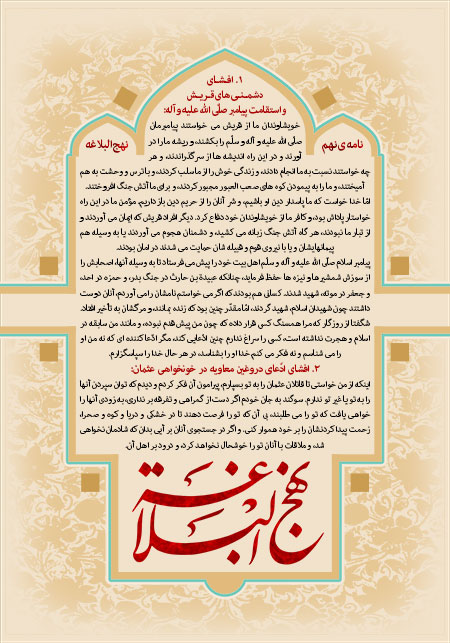 ۱. افشای
دشمنی‌های قریش
و استقامت پیامبر صلّی الله علیه و آله:
نامه‌ی نهم
نهج البلاغه
خویشاوندان ما از قریش می خواستند پیامبرمان
صلّی الله علیه و آله و سلّم را بکشند، و ریشه ما را در
آورند و در این راه اندیشه ها از سر گذراندند، و هر
چه خواستند نسبت به ما انجام دادند، و زندگی خوش را از ما سلب کردند، و با ترس و وحشت به هم
آمیختند، و ما را به پیمودن کوه های صعب العبور مجبور کردند، و برای ما آتش جنگ افروختند.
امّا خدا خواست که ما پاسدار دین او باشیم، و شر آنان را از حریم دین باز داریم، مؤمن ما در این راه
خواستار پاداش بود، و کافر ما از خویشاوندان خود دفاع کرد. دیگر افراد قریش که ایمان می آوردند و
از تبار ما نبودند، هر گاه آتش جنگ زبانه می کشید، و دشمنان هجوم می آوردند یا به وسیله هم
پیمانهایشان و یا با نیروی قوم و قبیله شان حمایت می شدند در امان بودند.
پیامبر اسلام صلّی الله علیه و آله و سلّم اهل بیت خود را پیش می فرستاد تا به وسیله آنها، اصحابش را
از سوزش شمشیرها و نیزه ها حفظ فرماید، چنانکه عبیدة بن حارث در جنگ بدر، و حمزه در احد،
و جعفر در موته، شهید شدند. کسانی هم بودند که اگر می خواستم نامشان را می آوردم، آنان دوست
داشتند چون شهیدان اسلام، شهید گردند، امّا مقدّر چنین بود که زنده بمانند، و مرگشان به تأخیر افتاد.
شگفتا از روزگار که مرا همسنگ کسی قرار داده که چون من پیش قدم نبوده، و مانند من سابقه در
اسلام و هجرت نداشته است، کسی را سراغ ندارم چنین ادّعایی کند، مگر ادّعا کننده ای که نه من او
را می شناسم و نه فکر می کنم خدا او را بشناسد، در هر حال خدا را سپاسگزارم.
۲. افشای ادّعای دروغین معاویه در خونخواهی عثمان:
اینکه از من خواستی تا قاتلان عثمان را به تو بسپارم، پیرامون آن فکر کردم و دیدم که توان سپردن آنها
را به تو یا غیر تو ندارم. سوگند به جان خودم اگر دست از گمراهی و تفرقه بر نداری، به زودی آنها را
خواهی یافت که تو را می طلبند، بی آن که تو را فرصت دهند تا در خشکی و دریا و کوه و صحرا،
زحمت پیدا کردنشان را بر خود هموار کنی. و اگر در جستجوی آنان بر آیی بدان که شادمان نخواهی
شد، و ملاقات با آنان تو را خوشحال نخواهد کرد، و درود بر اهل آن.
نهج البلاغة